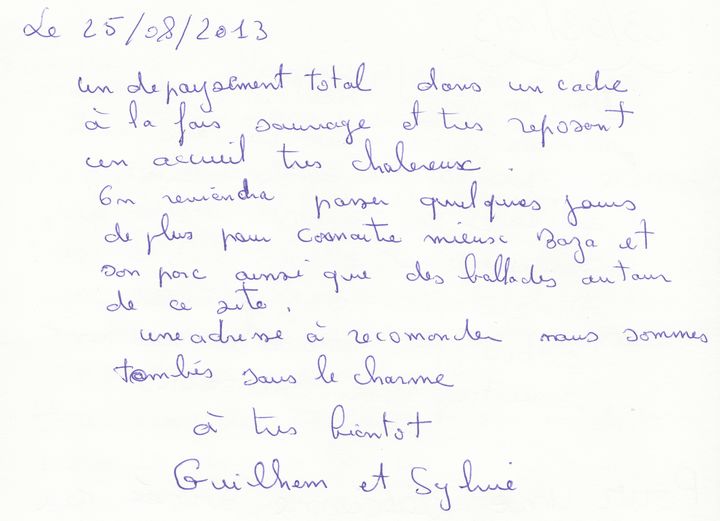 Le 25/08/2013
un depaysement total dans un cadre
à la fois sauvage et tres reposant
un accueil tres chalereux.
On reviendra passer quelques jours
de plus pour connaitre mieux Baza et
son parc ainsi que des ballades autour
de ce site.
une adresse à recomander nous sommes
tombés sous le charme
à tres bientot
Guilhem et Sylvie